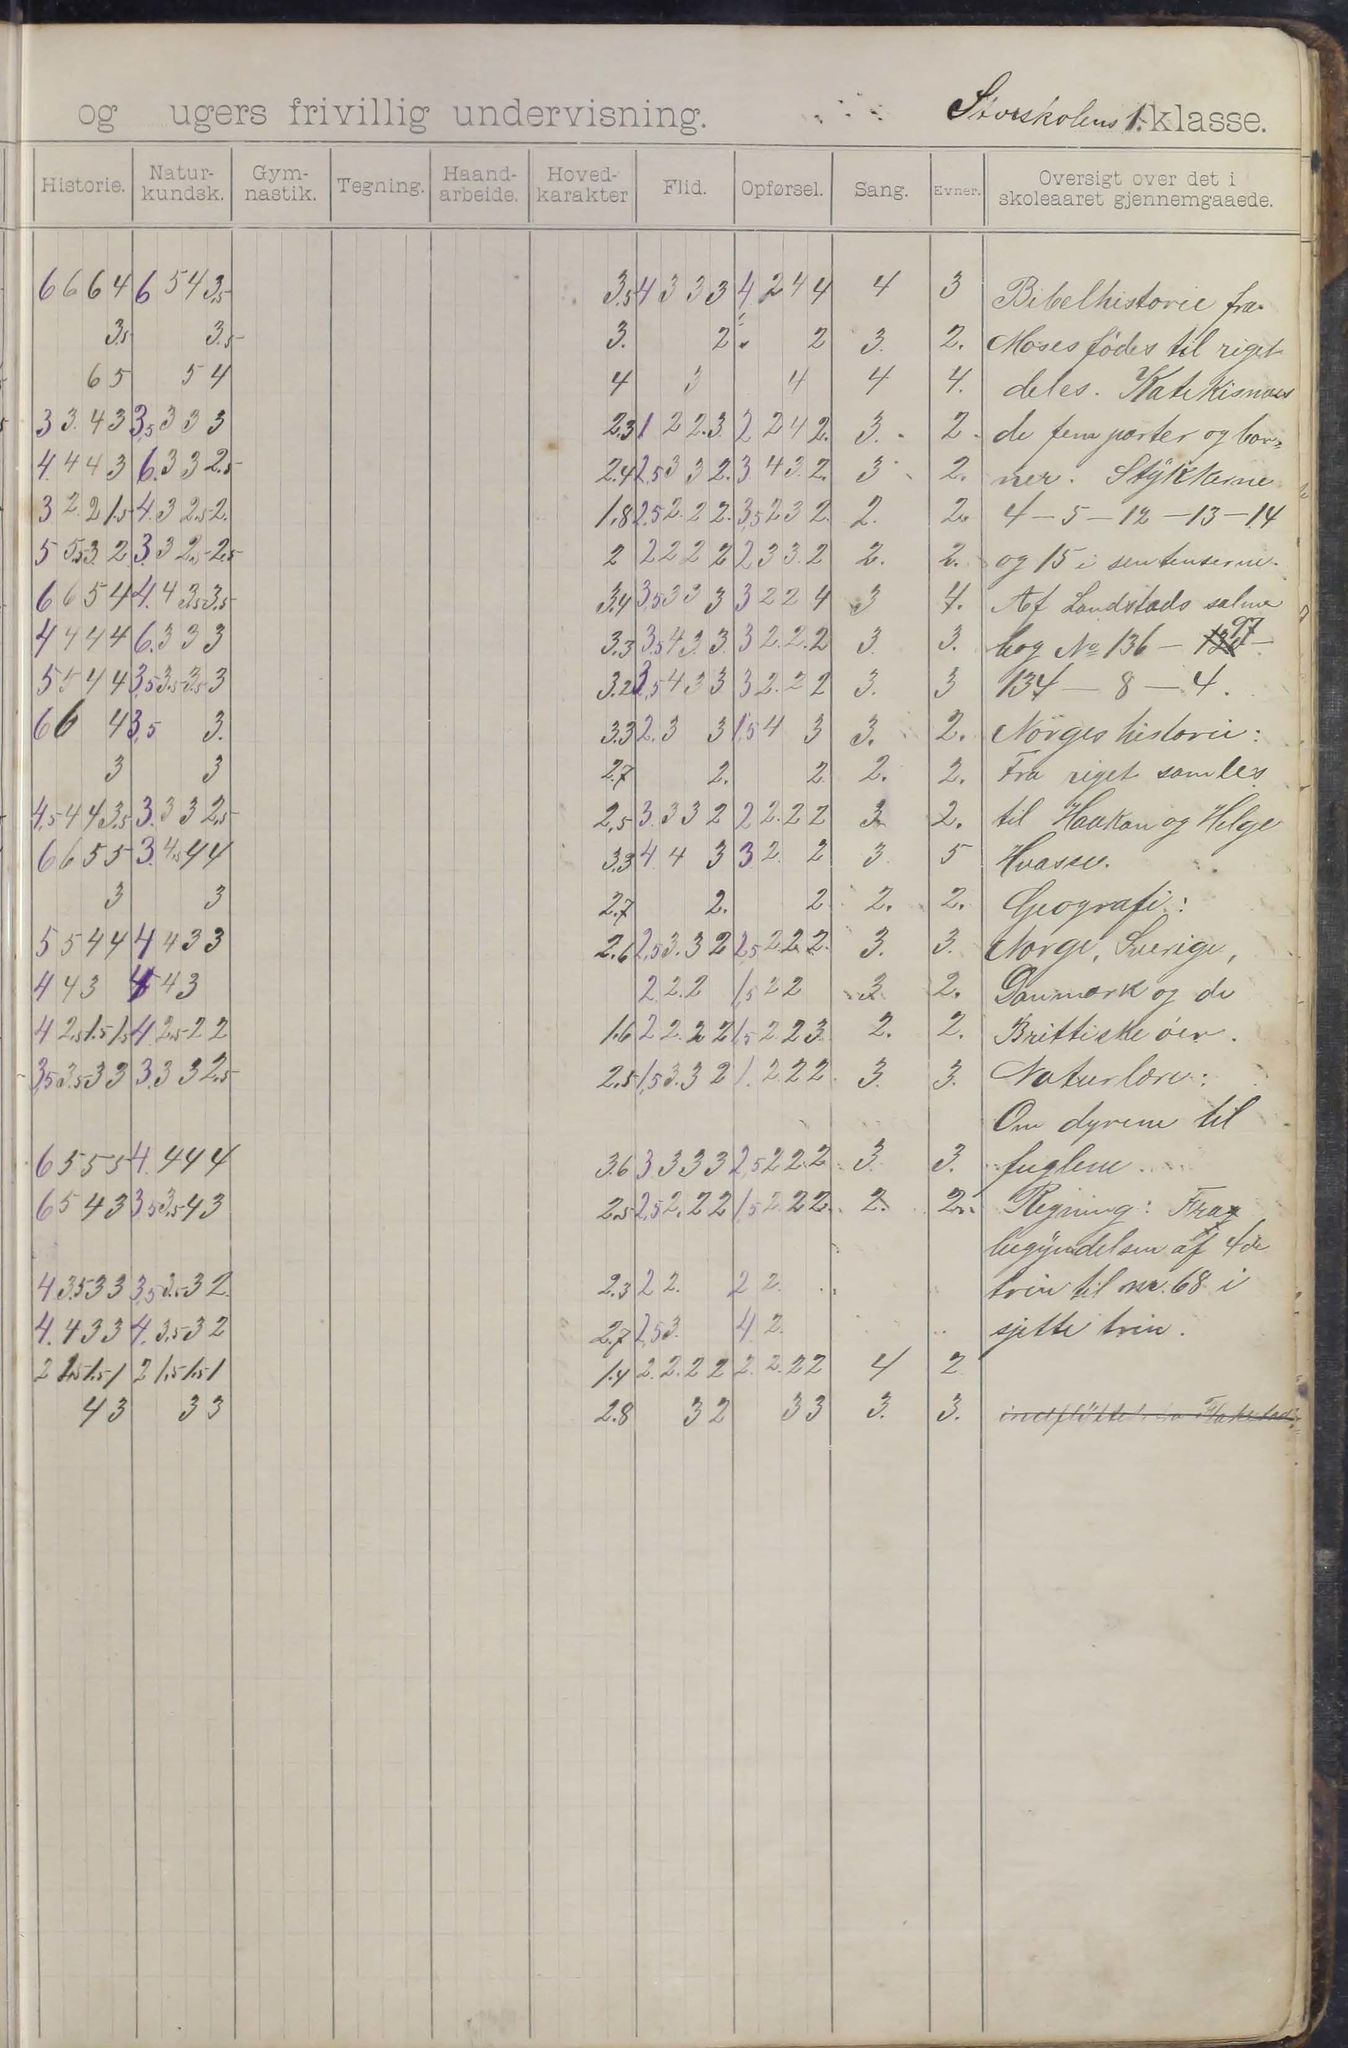 og ugers frivillig undervisning. Storskolens 1. klasse.
Historie. Natur-kundsk. Gym-nastik. Tegning. Haand-arbeide. Hoved-karakter Flid. Opførsel. Sang. Evner. Oversigt over det i skoleaaret gjennemgaaede.
6 6 6 4 6 5 4 3,5 3,5 4 3 3 3 4 2 4 4 4 3 Bibelhistorie fra
3,5 3,5 3. 2 2 3. 2. Moses fødes til riget
6 5 5 4 4 3 4 4 4. deles. Katekismus
3 3. 4 3 3,5 3 3 3 2.3 1 2 2. 3. 2 2 4 2. 3. 2. de fem parter og bøn-
4. 4 4 3 6. 3 3 2.5 2.4 2,5 3 3 2. 3 4 3 2. 3 2. ner. Stÿkkerne
3 2. 2 1.5 4. 3 2.5 2. 1.8 2,5 2. 2 2. 3,5 2 3 2. 2. 2. 4 - 5 - 12 - 13 - 14
5 5,5 3 2 3. 3 2,5 2,5 2 2 2 2 2 2 3 3 2 2. 2. og 15 i sentenserne.
6 6 5 4 4. 4 3,5 3,5 3.4 3,5 3 3 3 3 2 2 4 3 4. Af Landstads salme
4 4 4 4 6. 3 3 3 3.3 3,5 4 3 3 3 2. 2. 2 3. 3. bog № 136 - 97 -
5 5 4 4 3,5 3,5 3,5 3 3.2 3,5 4 3 3 3 2. 2 2 3. 3 134 - 8 - 4.
6 6 4 3,5 3. 3.3 2. 3 3 1,5 4 3 3. 2. Norges historie:
3 3 2.7 2. 2. 2. 2. Fra riget samles
4,5 4 4 3,5 3. 3 3 2,5 2,5 3. 3 3 2 2 2. 2 2 3 2. til Haakon og Helge
6 6 5 5 3. 4,5 4 4 3.3 4 4 3 3 2. 2 3. 5 Hvasse.
3 3 2.7 2. 2 2. 2. Geografi:
5 5 4 4 4 4 3 3 2.6 2,5 3. 3 2 2,5 2. 2. 2. 3. 3. Norge, Sverige,
4 4 3 4 4 3 2. 2. 2 1,5 2 2 3 2. Danmark og de
4 2,5 1.5 1,5 4 2,5 2 2 1.6 2 2. 2 2 1,5 2 2 3. 2. 2. Brittiske øer.
3,5 3,5 3 3 3. 3 3 2,5 2.5 1,5 3. 3 2 1. 2 2 2. 3. 3. Naturlære:
Om dyrene til
6 5 5 5 4. 4 4 4 3.6 3 3 3 3 2,5 2 2. 2 3. 3. fuglene
6 5 4 3 3,5 3,5 4 3 2.5 2,5 2. 2 2 1,5 2 2 2. 2. 2. Regning: Fra
begÿndelsen af 4de
4 3,5 3 3 3,5 3,5 3 2. 2.3 2 2. 2 2. trin til nr. 68 i
4. 4 3 3 4. 3,5 3 2 2.7 2,5 3. 4. 2. sjette trin.
2 1,5 1,5 1 2 1,5 1,5 1 1.4 2. 2. 2 2 2. 2. 2 2 4 2
4 3 3 3 2.8 3 2 3 3 3. 3. indflyttet